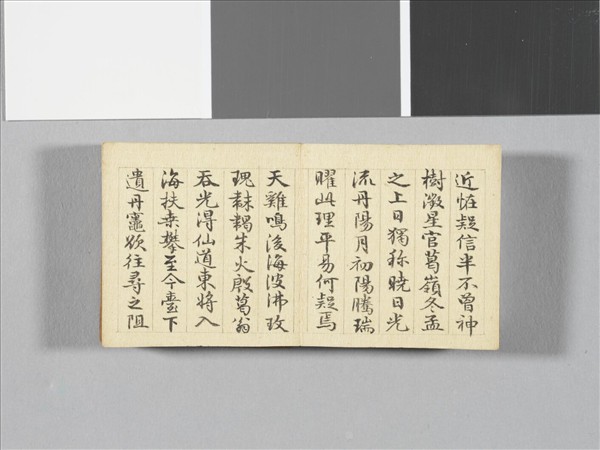 近恠疑信半不曾神
樹澂星官葛嶺冬孟
之上日獨称曉日光
流丹陽月初陽騰瑞
曜此理平易何疑焉
天雞鳴後海波沸玫
瑰朱火殷葛翁
吞光得仙道東将入
海扶桒攀至今臺下
遺丹竈欲往尋之阻